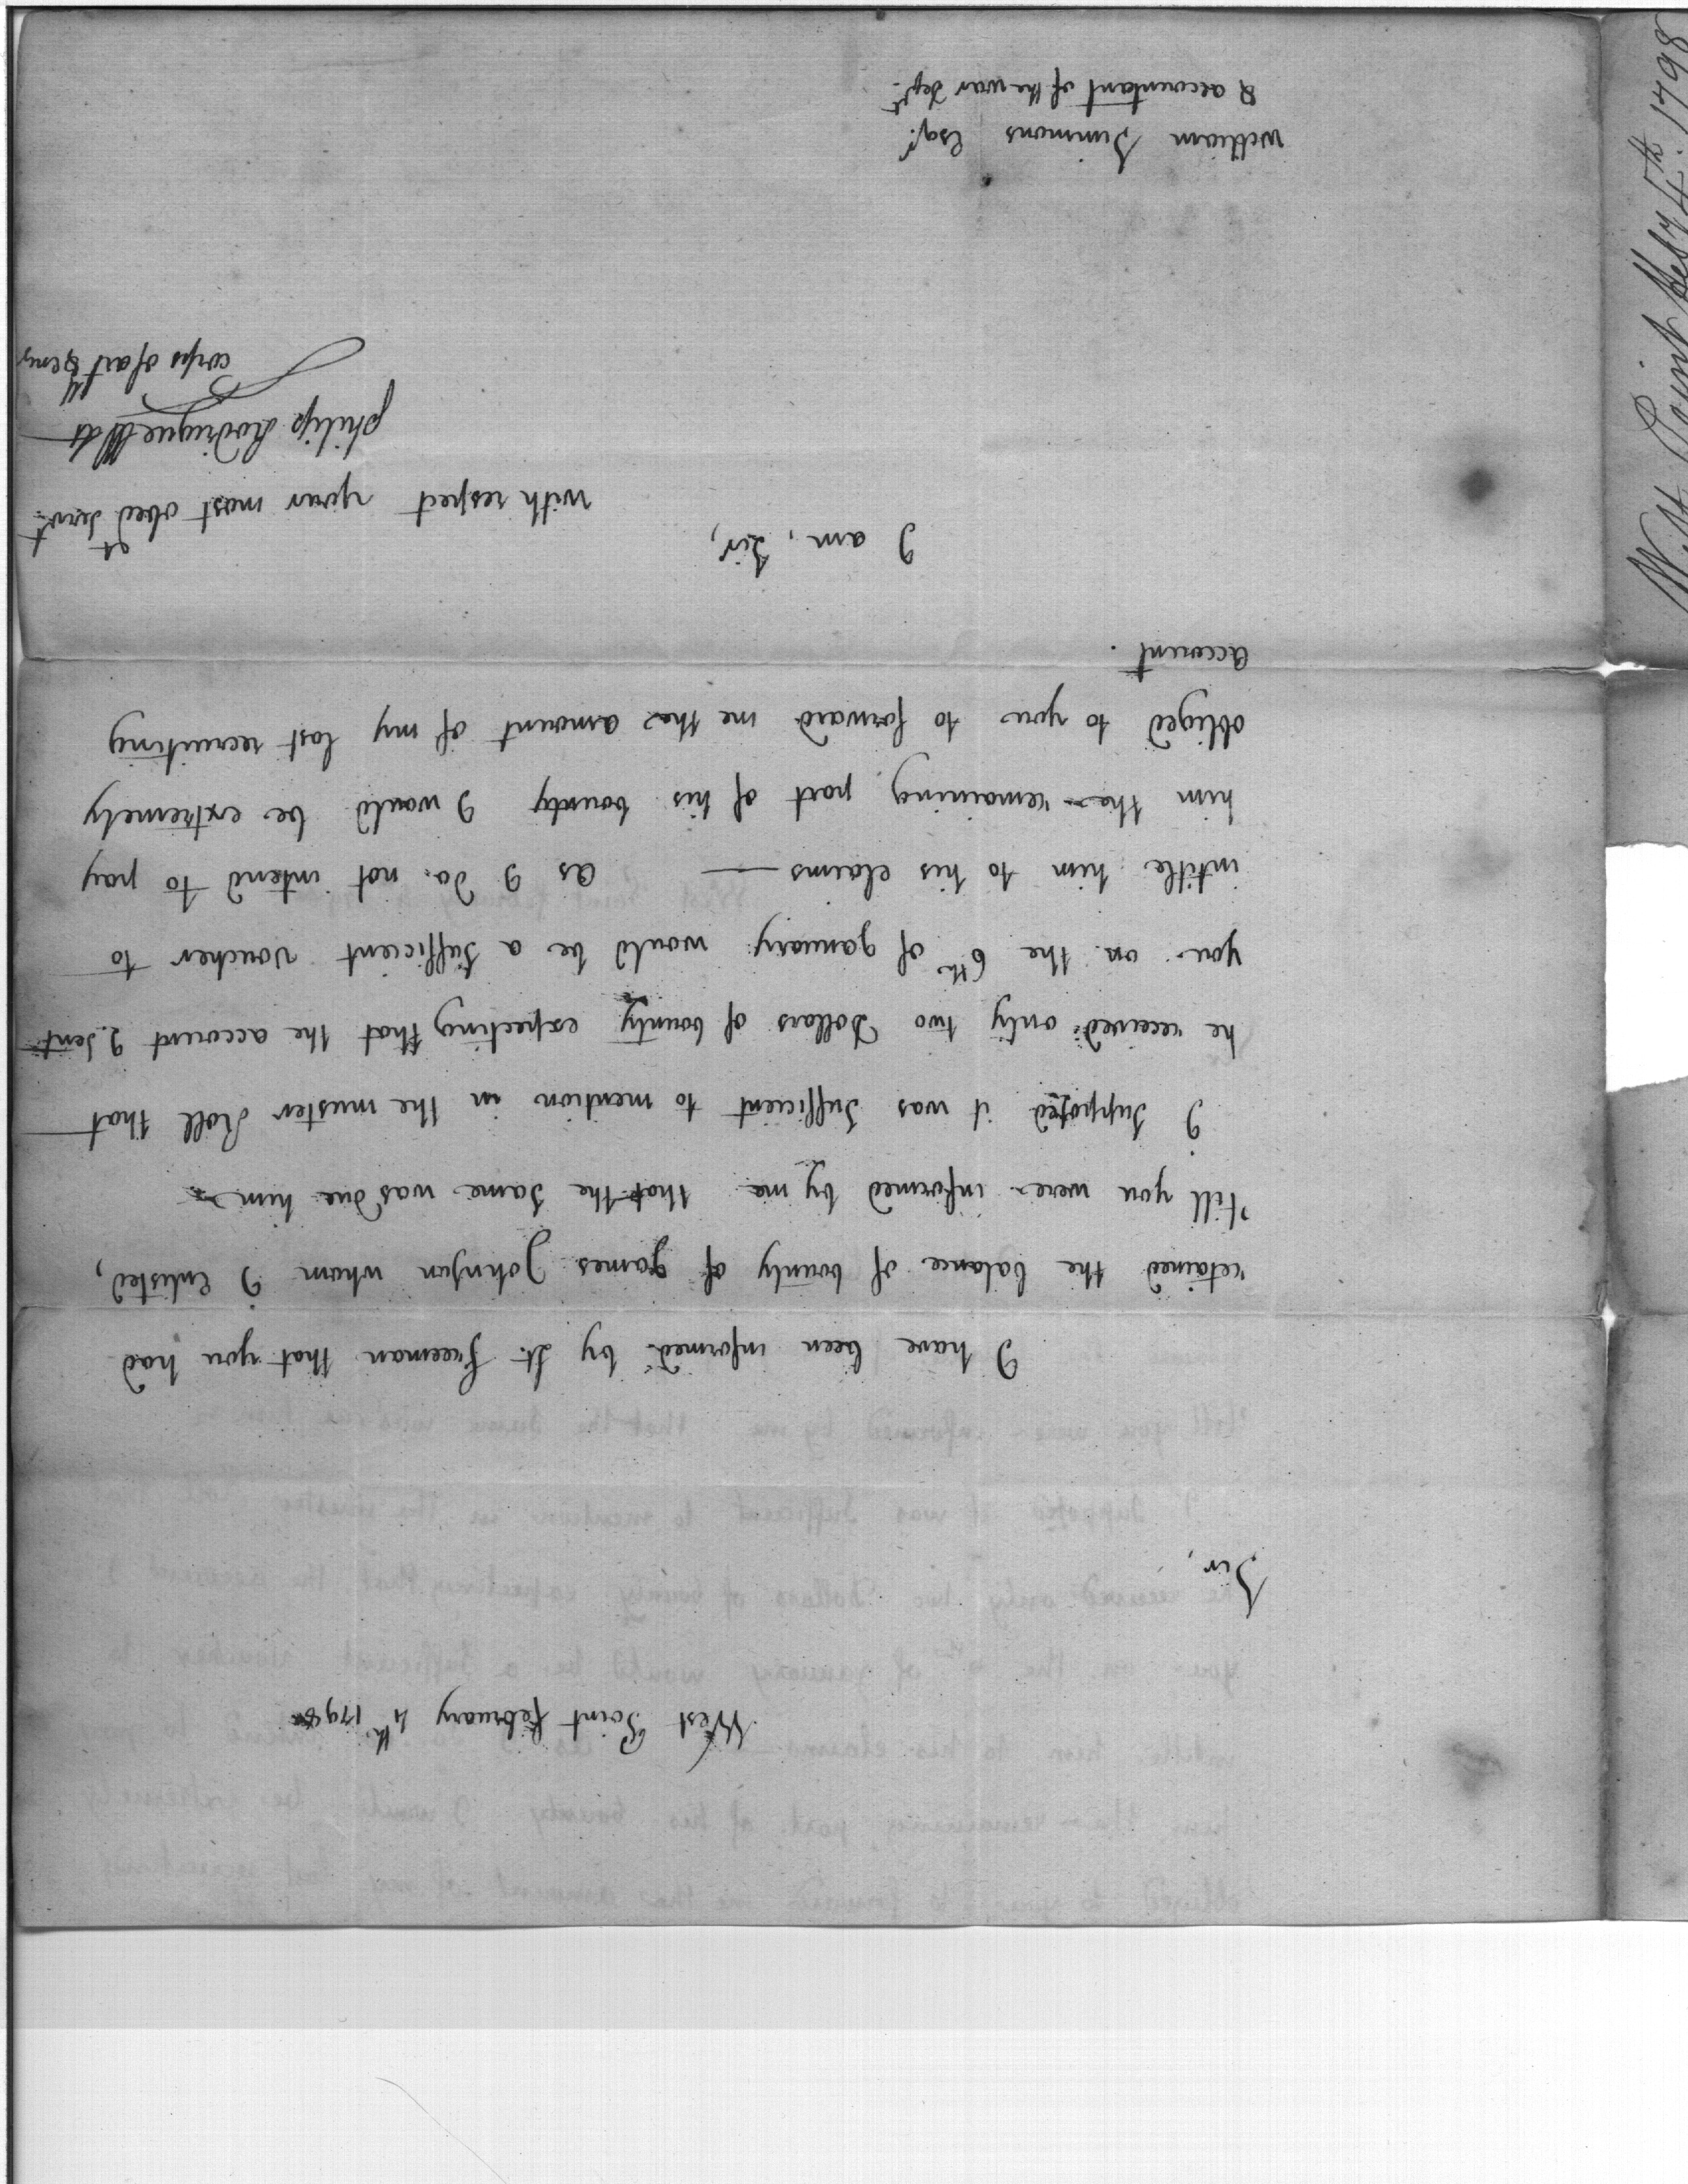 West Point february 4th. 1798
Sir,
I have been informed by Lt. Freeman that you had
retained the balance of bounty of games Johnson whom I Enlisted,
till you were informed by me that the Same was due him
I Supposed it was Sufficient to mention in the muster Roll that
he received only two Dollars of bounty expecting that the account I Sent
you on the 6th of january would be a Sufficient voucher to
intitle him to his claims — as I do not intend to pay
him the remaining part of his bounty I would be extremely
obliged to you to forward me the amount of my last recruiting
account.
I am, Sir,
with respect your most obed Servt
philip Rodrigue Lt
corps of art & eng
William Simmons Esqr.
& accountant of the war dept.
West Point Feby 4th. 1798